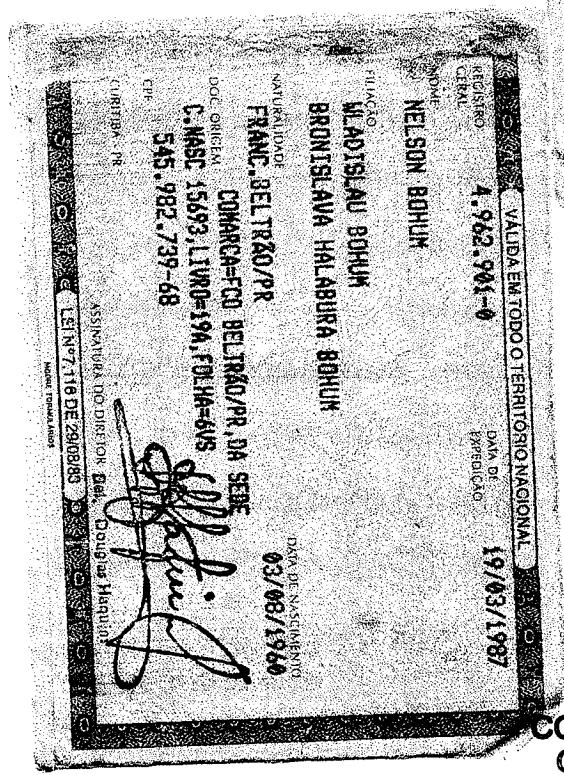 VÁLIDA EM TODO O TERRITÓRIO NACIONAL
REGISTRO GERAL 4.962.901-0 DATA DE EXPEDIÇÃO 19/03/1987
NOME
NELSON BOHUM
FILIAÇÃO
WLADISLAU BOHUM
BRONISLAVA HALABURA BOHUM
NATURALIDADE DATA DE NASCIMENTO
FRANC.BELTRÃO/PR 03/08/1960
DOC. ORIGEM COMARCA=FCO BELTRÃO/PR,DA SEDE
C.NASC 15693,LIVRO=19A,FOLHA=6VS
CPF 545.982.739-68
CURITIBA - PR
ASSINATURA DO DIRETOR Del. Douglas Haquim
LEI Nº 7.116 DE 29/08/83
CO